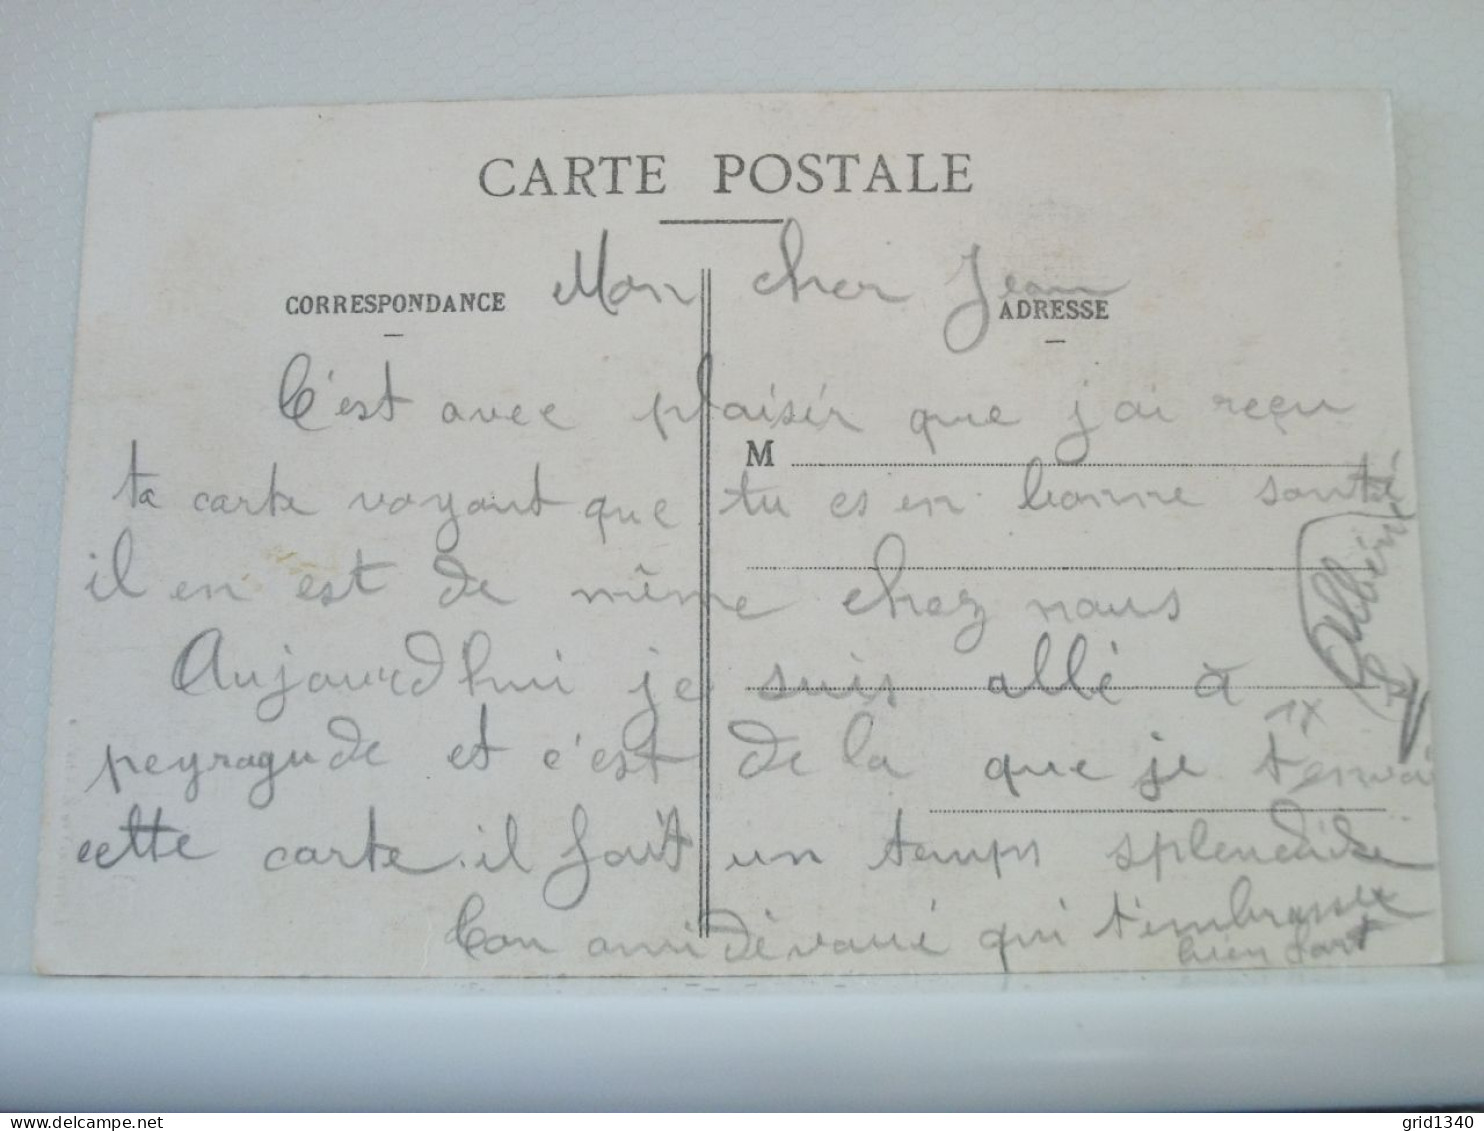 CARTE POSTALE
Mon cher Jean
CORRESPONDANCE
ADRESSE
C'est avec plaisir que j'ai reçu
M
ta carte voyant que tu es en bonne santé
il en est de même chez nous
Aujourd'hui je suis allé à
peyragude et c'est de la que je t'envoi
cette carte. il fait un temps splendide
Ton ami dévoué qui t'embrasse
bien fort
Albéric
grid1340